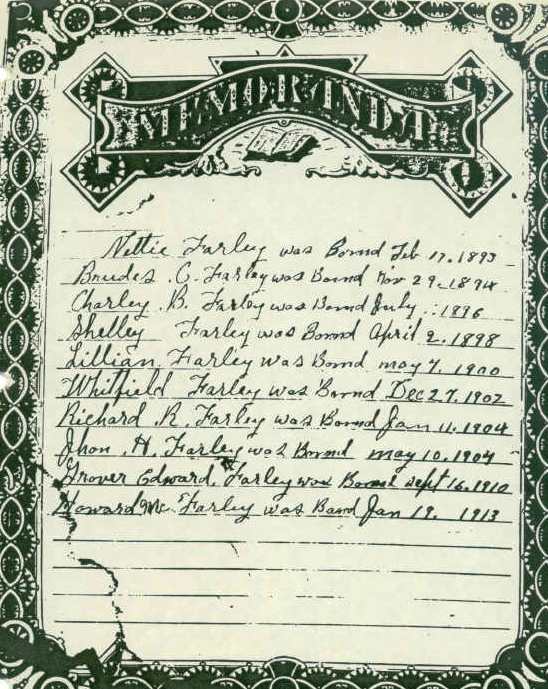 MEMORANDA
Nettie Farley was Bornd Feb 17. 1893
C. Farley was Bornd Nov 29. 1894
Charley B. Farley was Bornd July 1896
Shelley Farley was Bornd April 2. 1898
Lillian Farley was Bornd may 7, 1900
Whitfield Farley was Bornd Dec 27, 1902
Richard R. Farley was Bornd Jan 11. 1904
Jhon H. Farley was Bornd may 10, 1904
Grover Edward Farley was Bornd Sept 16, 1910
Howard Mc Farley was Bornd Jan 19. 1913